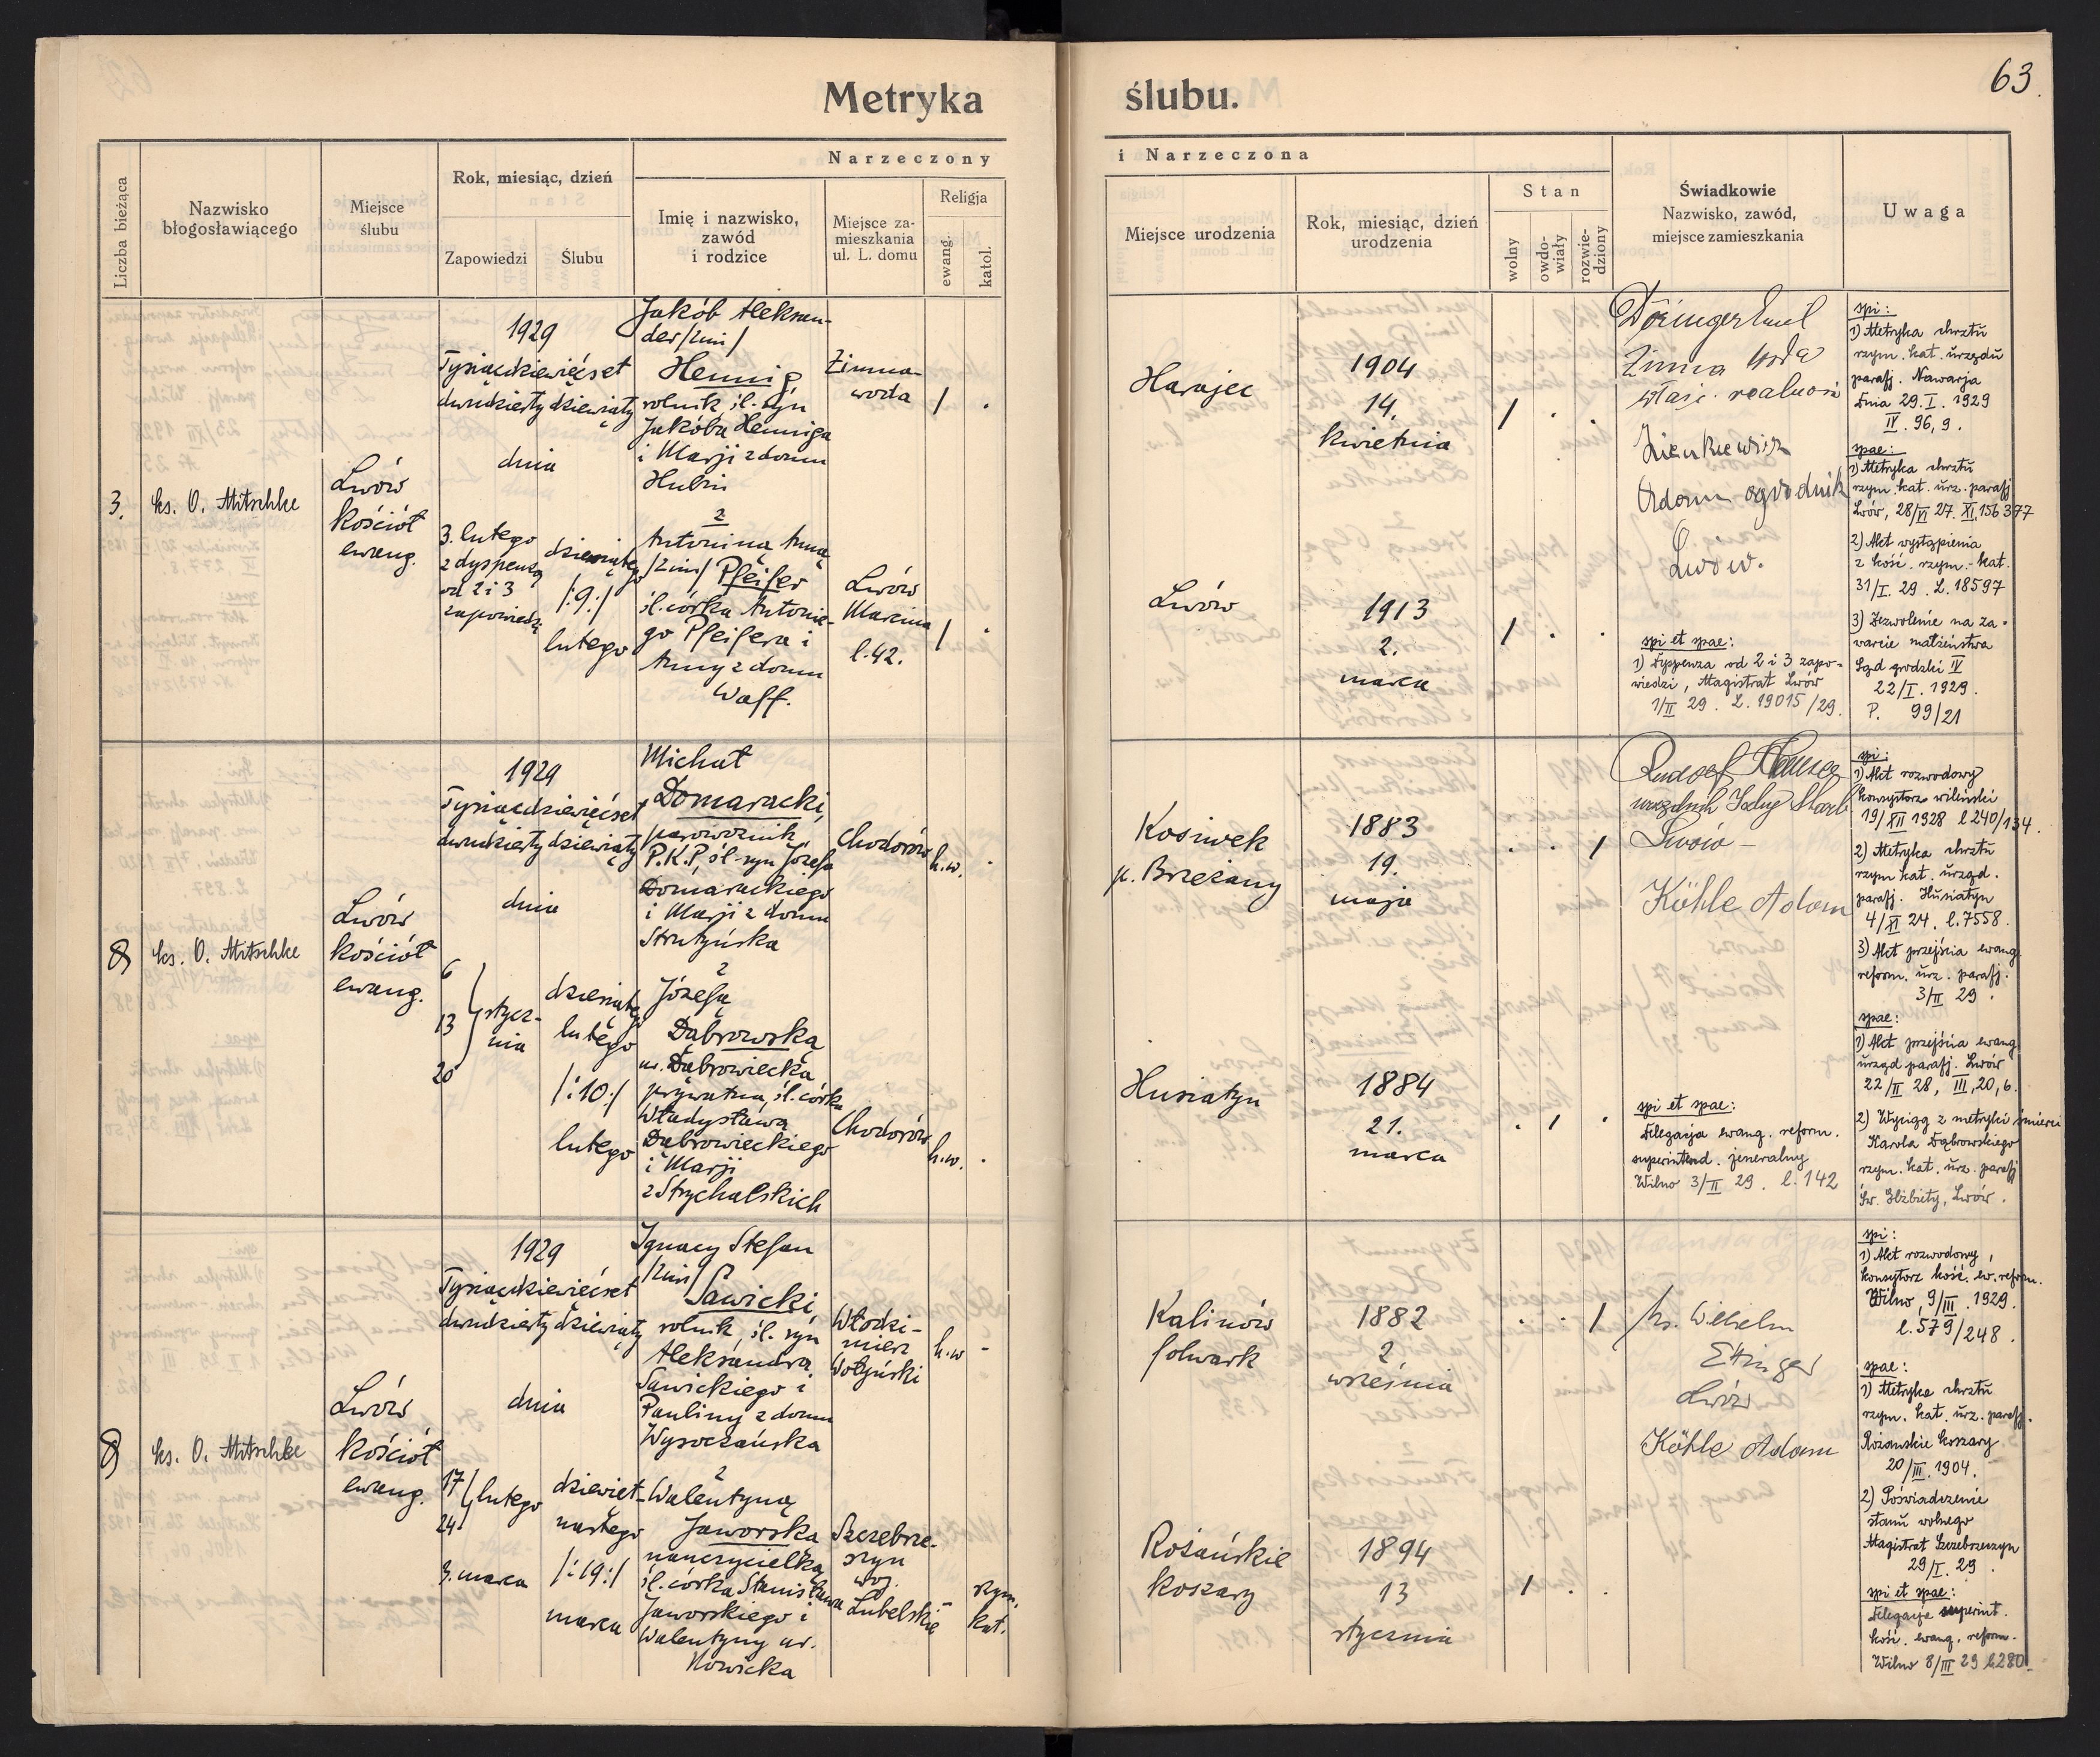 63
Metryka ślubu.
Narzeczony i Narzeczona
Liczba bieżąca
Nazwisko
błogosławiącego
Miejsce
ślubu
Rok, miesiąc, dzień
Zapowiedzi
Ślubu
Imię i nazwisko,
zawód
i rodzice
Miejsce za-
mieszkania
ul. L. domu
Religja
ewang.
katol.
Miejsce urodzenia
Rok, miesiąc, dzień
urodzenia
Stan
wolny
owdo-
wiały
rozwie-
dziony
Świadkowie
Nazwisko, zawód,
miejsce zamieszkania
Uwaga
3.
ks. O. Mitschke
Lwów
kościół
ewang.
1929
Tysiącdziewięćset
dwudziesty dziewiąty
dnia
3. lutego
z dyspenzą
od 2 i 3
zapowiedzi
dziewiątego
/:9:/
lutego
Jakób Aleksan-
der /2im/
Hennig,
rolnik śl. syn
Jakóba Henniga
i Marji z domu
Hubin
2
Antonina Anna
/2im/ Pfeifer
śl. córka Antonie-
go Pfeifera i
Anny z domu
Waff.
Zimna-
woda
Lwów
Marcina
l. 42.
/ .
/ .
Harajec
1904
14.
kwietnia
/ . .
Lwów
1913
2.
marca
/ . .
Döringer Emil
Zimna Woda
właśc. realnośi
Zienkiewicz
Adam ogrodnik
Lwów.
spi et spae:
1) Dyspenza od 2 i 3 zapo-
wiedzi, Magistrat Lwów
1/II 29. L. 19015/29.
spi:
1) Metryka chrztu
rzym. kat. urzędu
parafj. Nawarja
dnia 29. I. 1929
IV. 96, 9.
spae:
1) Metryka chrztu
rzym. kat. urz. parafj
Lwów, 28/VI 27. XI, 156 377
2) Akt wystąpienia
z kość. rzym.-kat.
31/I. 29. L. 18597
3) Zezwolenie na za-
warcie małżeństwa
Sąd grodzki IV
22/I. 1929.
P. 99/21
8
ks. O. Mitschke
Lwów
kościół
ewang.
1929
Tysiącdziewięćset
dwudziesty dziewiąty
dnia
6
13
20
stycz-
nia
dziesiątego
lutego
/:10:/
lutego
Michał
Domaracki,
parowoźnik
P.K.P, śl. syn Józefa
Domarackiego
i Marji z domu
Strutyńska
2
Józefa
Dąbrowska
ur. Dąbrowiecka
prywatna, śl. córka
Władysława
Dąbrowieckiego
i Marji
z Strychalskich
Chodorów
h.w. .
Chodorów
h.w. .
Kosiwek
p. Brzeżany
1883
19.
maja
. . /
Husiatyn
1884
21.
marca
. / .
Rudolf
Lwów -
Köhle Adam
spi et spae:
Delegacja ewang. reform.
superintend. jeneralny
Wilno 3/II 29. l. 142
spi:
1) Akt rozwodowy
konsystorz wileński
19/XII 1928 l 240/134.
2) Metryka chrztu
rzym kat. urząd.
parafj. Husiatyn
4/XI 24. l. 7558.
3) Akt przejścia ewang
reform. urz. parafj.
3/II 29.
spae:
1) Akt przejścia ewang
urząd parafj. Lwów
22/II 28, III, 20, 6.
2) Wyciąg z metryki śmierci
Karola Dąbrowskiego
rzym. kat. urz. parafj
Św. Elżbiety, Lwów.
8
ks. O. Mitschke
Lwów
kościół
ewang.
1929
Tysiącdziewięćset
dwudziesty dziewiąty
dnia
17
24
lutego
3. marca
dziewięt-
nastego
/:19:/
marca
Ignacy Stefan
/2im/
Sawicki
rolnik, śl. syn
Aleksandra
Sawickiego i
Pauliny z domu
Wysoczańska
2
Walentyna
Jaworska
nauczycielka
śl. córka Stanisława
Jaworskiego i
Walentyny ur.
Nowicka
Włodzi-
mierz
Wołyński
h.w -
Szczebrze-
szyn
woj.
Lubelskie
rzym.
kat.
Kalinów
folwark
1882
2
września
. . /
Rożańskie
koszary
1894
13
stycznia
/ . .
ks. Wilhelm
Ettinger
Lwów
Köhle Adam
spi:
1) Akt rozwodowy,
konsystorz kość. ew. reform.
Wilno, 9/III. 1929.
l. 579/248.
spae:
1) Metryka chrztu
rzym. kat. urz. parafj.
Rożanskie koszary
20/III. 1904.
2) Poświadczenie
stanu wolnego
Magistrat Szczebrzeszyn
29/I. 29.
spi et spae:
Delegacja superint.
kość. ewang. reform.
Wilno 8/III 29 l. 280.